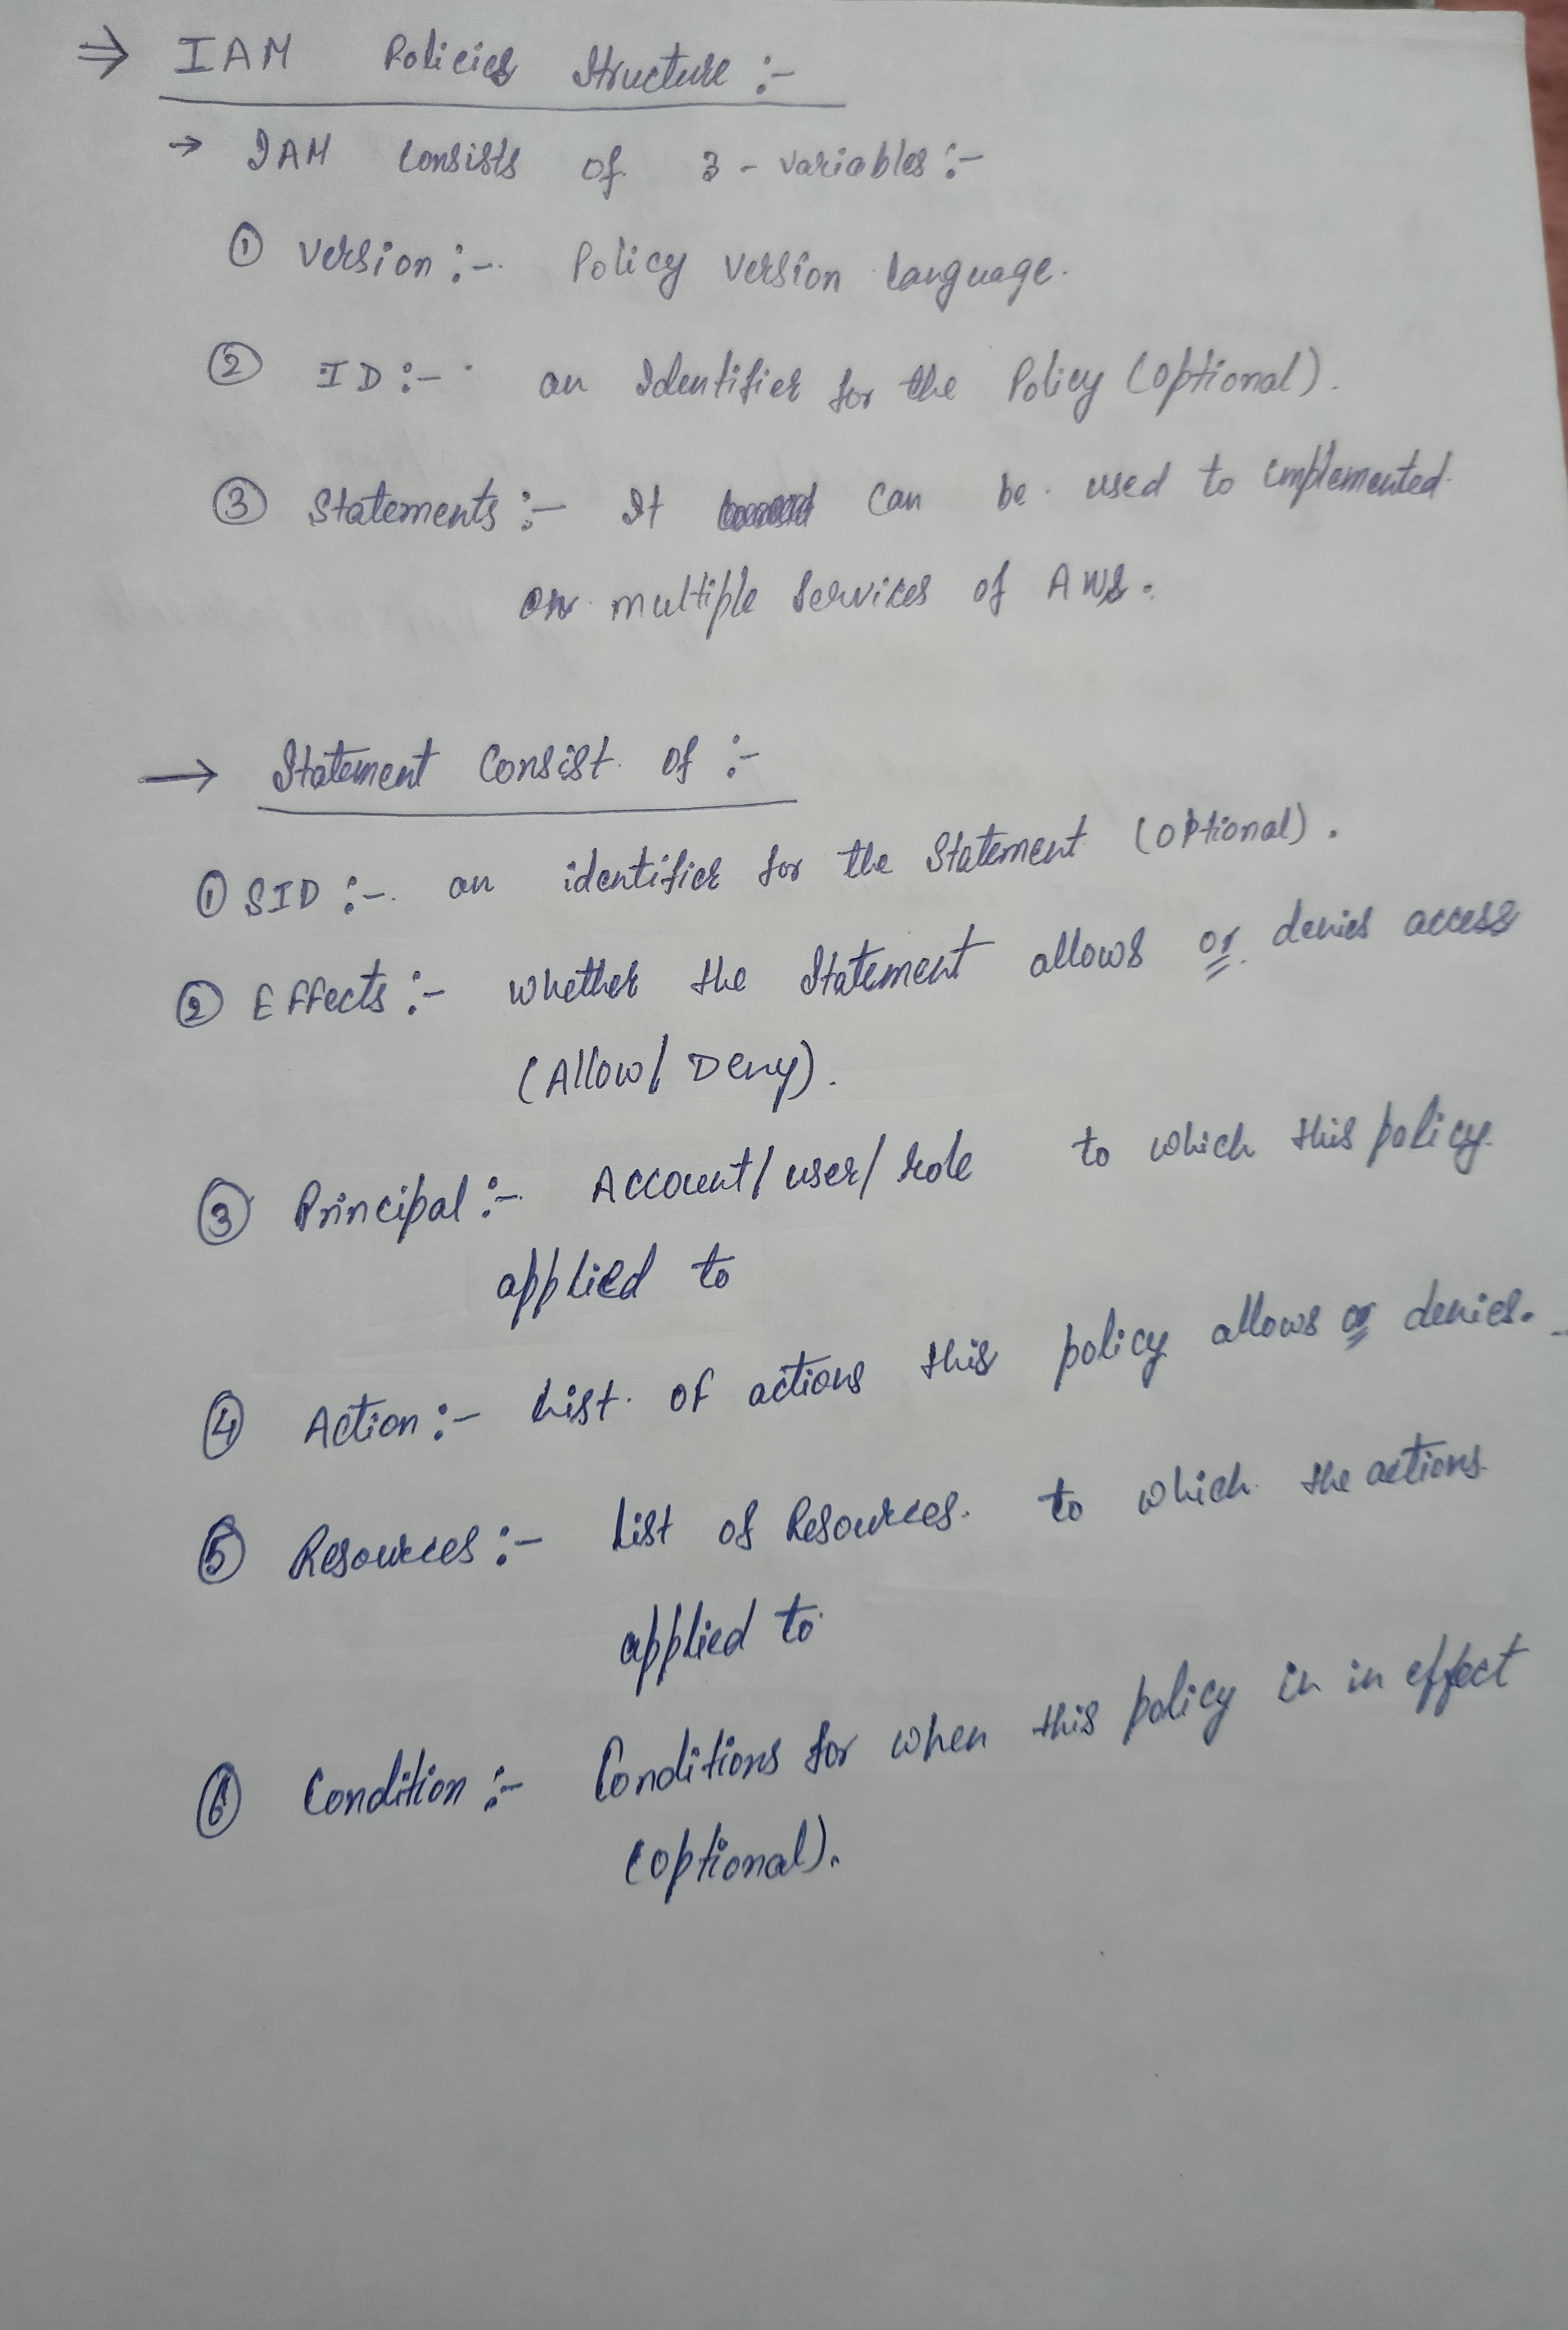 ⇒ IAM Policies Structure :-
→ IAM Consists of 3 - variables :-
① Version :- Policy version language.
② ID :- an Identifier for the Policy (optional).
③ Statements :- It can be used to implemented
on multiple services of AWS.
→ Statement Consist of :-
① SID :- an identifier for the Statement (optional).
② Effects :- whether the Statement allows or denies access
(Allow/Deny).
③ Principal :- Account/user/role to which this policy
applied to
④ Action :- List of actions this policy allows or denies.
⑤ Resources :- List of Resources to which the actions
applied to
⑥ Condition :- Conditions for when this policy in in effect
(optional).